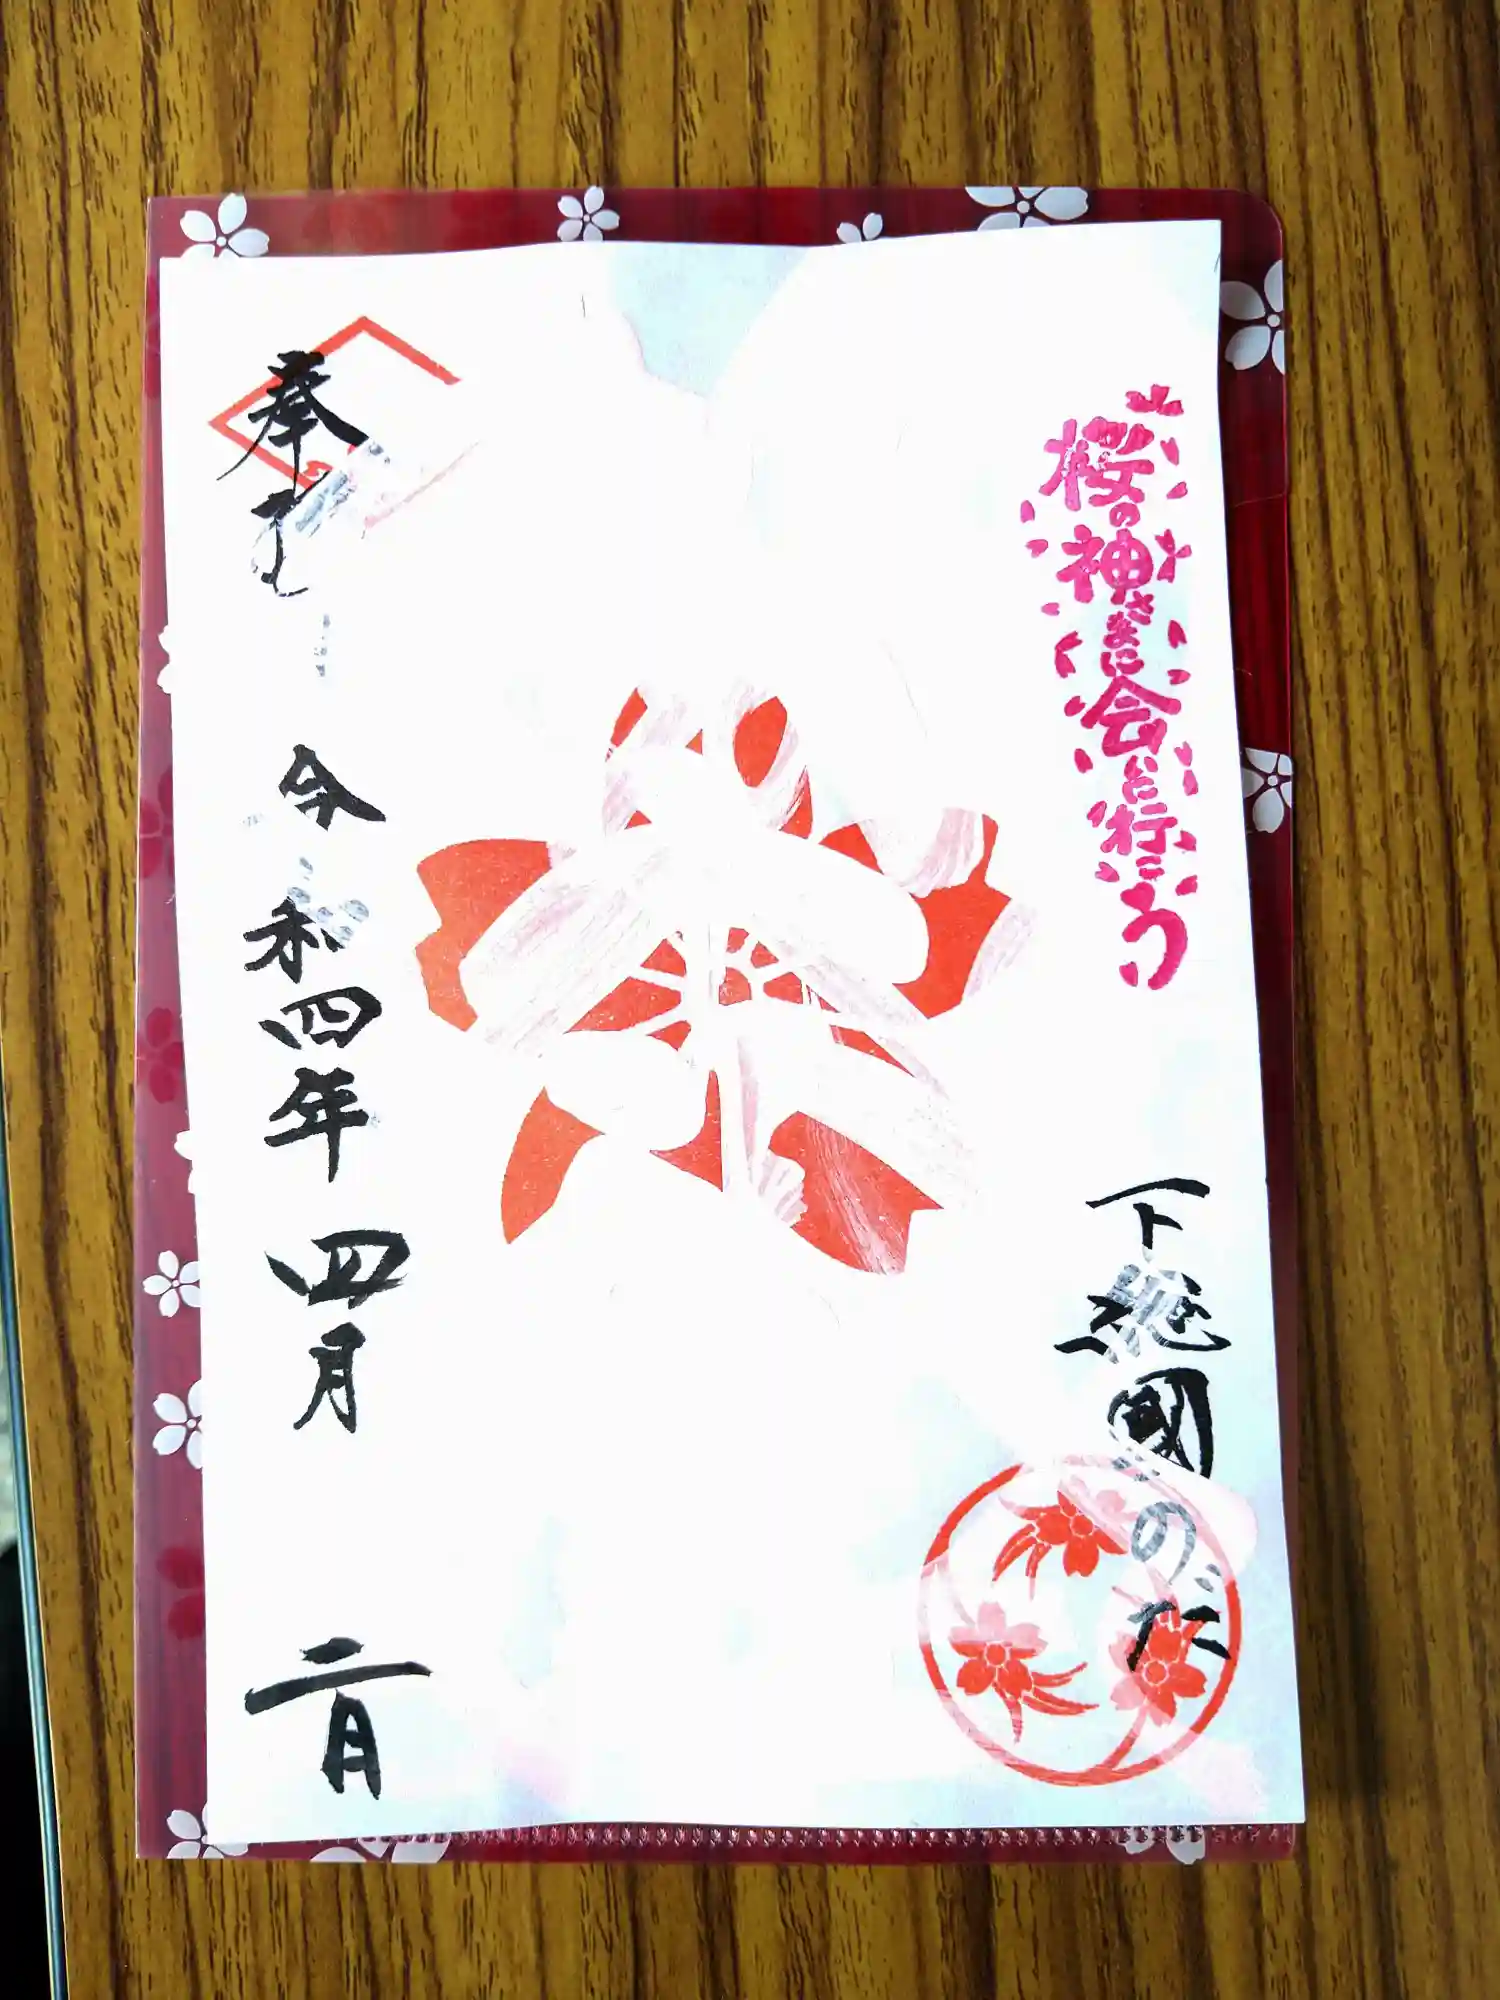 桜の神さまに会いに行こう
下総國のだ
奉
令和四年 四月 二日